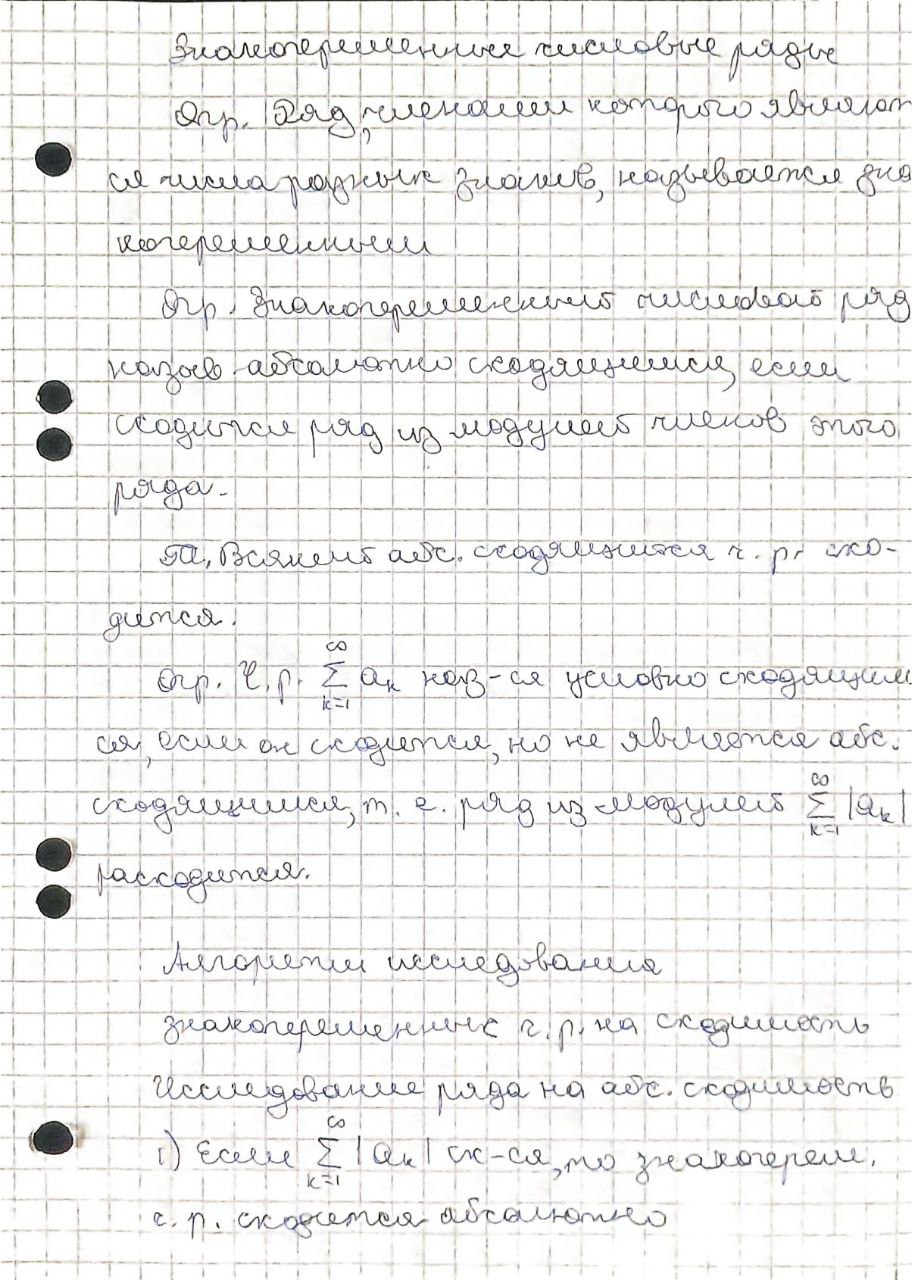 Знакопеременные числовые ряды
Опр. Ряд, членами которого являют
ся числа разных знаков, называется зна
копеременным
Опр. Знакопеременный числовой ряд
назыв абсолютно сходящимся, если
сходится ряд из модулей членов этого
ряда.
Т. Всякий абс. сходящийся ч. р. схо-
дится.
Опр. Ч. р. $\sum_{k=1}^{\infty} a_k$ наз-ся условно сходящим
ся, если он сходится, но не является абс.
сходящимся, т. е. ряд из модулей $\sum_{k=1}^{\infty} |a_k|$
расходится.
Алгоритм исследования
знакопеременных ч. р. на сходимость
Исследование ряда на абс. сходимость
1) Если $\sum_{k=1}^{\infty} |a_k|$ сх-ся, то знакоперем.
ч. р. сходится абсолютно